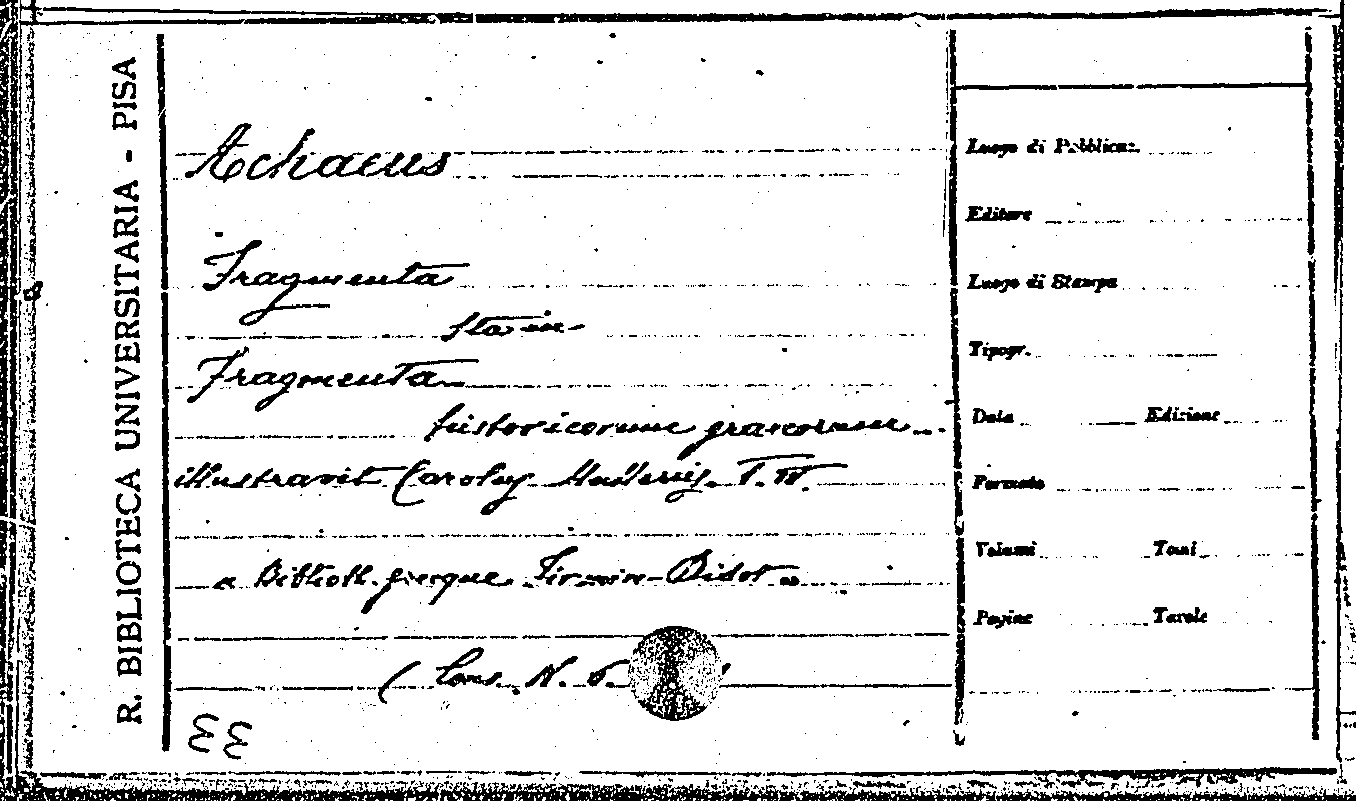 R. BIBLIOTECA UNIVERSITARIA - PISA
Achaeus
Fragmenta
sta in
Fragmenta
historicorum graecorum...
illustravit Carolus Mullerus. T. IV.
« Biblioth. grecque Firmin-Didot »
( Cons. N. 6.
EE
Luogo di Pubblicaz.
Editore
Luogo di Stampa
Tipogr.
Data Edizione
Formato
Volumi Tomi
Pagine Tavole